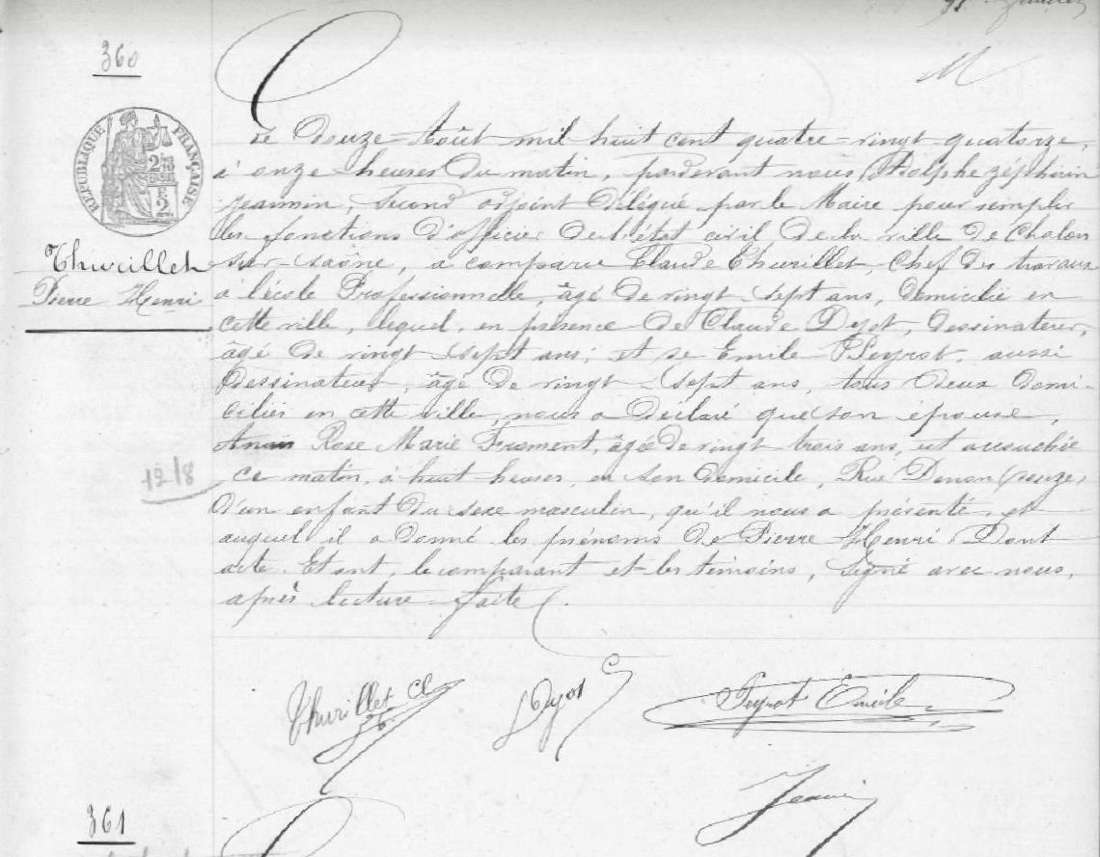 360
M
RÉPUBLIQUE FRANÇAISE
Thurillet
Pierre Henri
12/8
Le Douze Août mil huit cent quatre-vingt-quatorze,
à onze heures du matin, pardevant nous Adolphe Zéphirin
Jeannin, second adjoint délégué par le Maire pour remplir
les fonctions d'officier de l'état civil de la ville de Chalon
sur-Saône, a comparu Claude Thurillet, Chef des travaux
à l'école Professionnelle, âgé de vingt-sept ans, domicilié en
cette ville, lequel, en présence de Claude Dyot, dessinateur,
âgé de vingt-sept ans; et de Emile Peyrot, aussi
Dessinateur, âgé de vingt-sept ans, tous deux domi-
ciliés en cette ville, nous a déclaré que son épouse,
Rose Marie Froment, âgée de vingt trois ans, est accouchée
ce matin, à huit heures, en son domicile, Rue Denon (onze)
d'un enfant du sexe masculin, qu'il nous a présenté, et
auquel il a donné les prénoms de Pierre Henri Dont
acte. Et ont, le comparant et les témoins, signé avec nous,
après lecture faite.
Thurillet Cl
Dyot C
Peyrot Emile
Jeannin
361